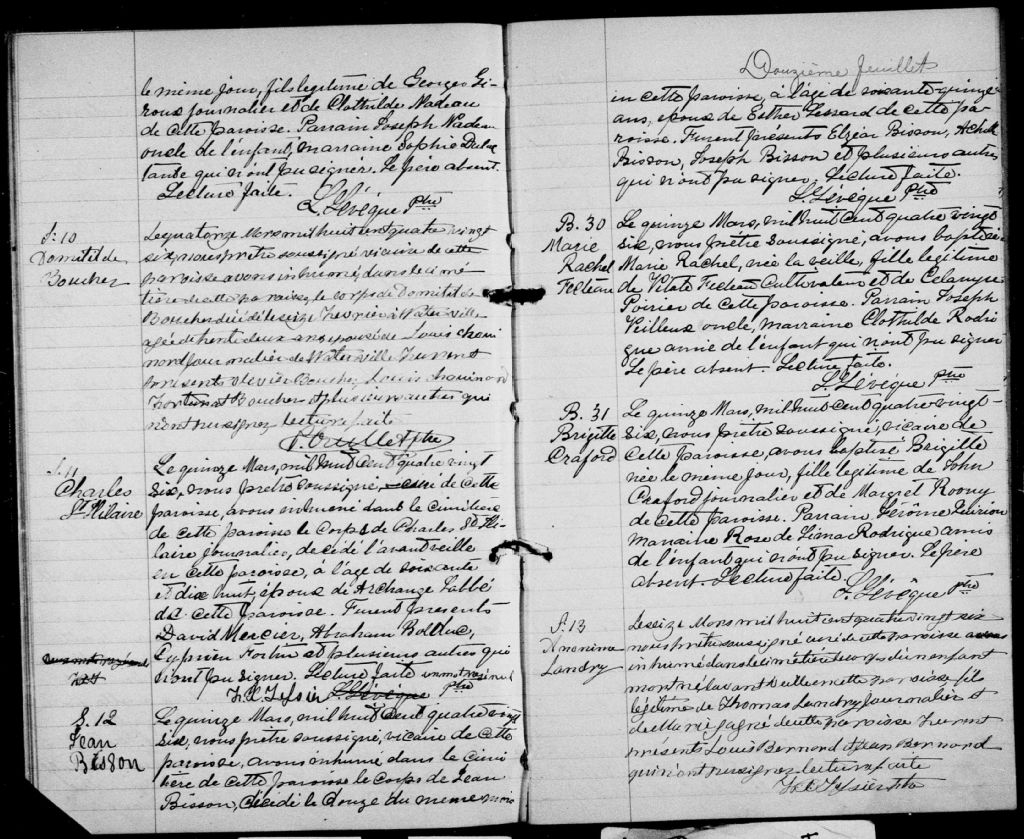 le même jour, fils legitime de Georges Gi-
roux journalier et de Clothilde Nadeau
de cette paroisse. Parrain Joseph Nadeau
oncle de l'enfant, marraine Sophie
tante qui n'ont pu signer. Le père absent.
Lecture faite.
L. Lévêque Ptre
S. 10
Domitilde
Boucher
Le quatorze Mars mil huit cent quatre vingt
six, nous prêtre soussigné vicaire de cette
paroisse avons inhumé dans le cime
tière de cette paroisse, le corps de Domitilde
Boucher décédée le seize Fevrier à Waterville
agée de trente deux ans epouse de Louis Choui
nord journalier de Waterville Furent
présents Boucher, Louis Chouinord
Fortunat Boucher et plusieurs autres qui
n'ont pu signer, lecture faite
Ptre
S. 11
Charles
St Hilaire
Le quinze Mars, mil huit cent quatre vingt
six, nous prêtre soussigné, curé de cette
paroisse, avons inhumé dans le cimetière
de cette paroisse le corps de Charles St Hi-
laire journalier, decidé l'avant veille
en cette paroisse, à l'âge de soixante
et dix huit, époux de Archange Labbé
de cette paroisse. Furent presents
David Mercier, Abraham Bolduc,
Cyprien Fortin et plusieurs autres qui
n'ont pu signer. Lecture faite un mot rayé nul
L. Lévêque Ptre
S. 12
Jean
Bisson
Le quinze Mars, mil huit cent quatre vingt
six, nous prêtre soussigné, vicaire de cette
paroisse, avons inhumé dans le cime
tière de cette paroisse le corps de Jean
Bisson, décédé le douze du meme mois
Douzième feuillet
en cette paroisse, à l'âge de soixante quinze
ans, epoux de Esther Lessard de cette pa-
roisse. Furent présents Elzéar Bisson, Achille
Bisson, Joseph Bisson et plusieurs autres
qui n'ont pu signer. Lecture faite.
L. Lévêque Ptre
B. 30
Marie
Rachel
Fecteau
Le quinze Mars, mil huit cent quatre vingt
six, nous prêtre soussigné, avons baptisé
Marie Rachel, née la veille, fille legitime
de Fecteau Cultivateur et de
Poirier de cette paroisse. Parrain Joseph
Veilleux oncle, marraine Clothilde Rodri
gue amie de l'enfant qui n'ont pu signer
Le père absent. Lecture faite.
L. Lévêque Ptre
B. 31
Brigitte
Craford
Le quinze Mars, mil huit cent quatre vingt-
six, nous prêtre soussigné, vicaire de
cette paroisse, avons baptisé Brigitte
née le meme jour, fille legitime de John
Craford journalier et de Margret Roony
de cette paroisse. Parrain Jérôme
marraine Rose de Lima Rodrigue amis
de l'enfant qui n'ont pu signer. Le père
absent. Lecture faite.
L. Lévêque Ptre
S. 13
Anonime
Landry
Le seize Mars mil huit cent quatre vingt six
nous prêtre soussigné curé de cette paroisse avons
inhumé dans le cimetière le corps d'un enfant
mort né l'avant veille en cette paroisse fils
légitime de Thomas Landry journalier et
de Marie Gagné de cette paroisse Furent
présents Louis Bernord et Jean Bernord
qui n'ont pu signer lecture faite
Ptre